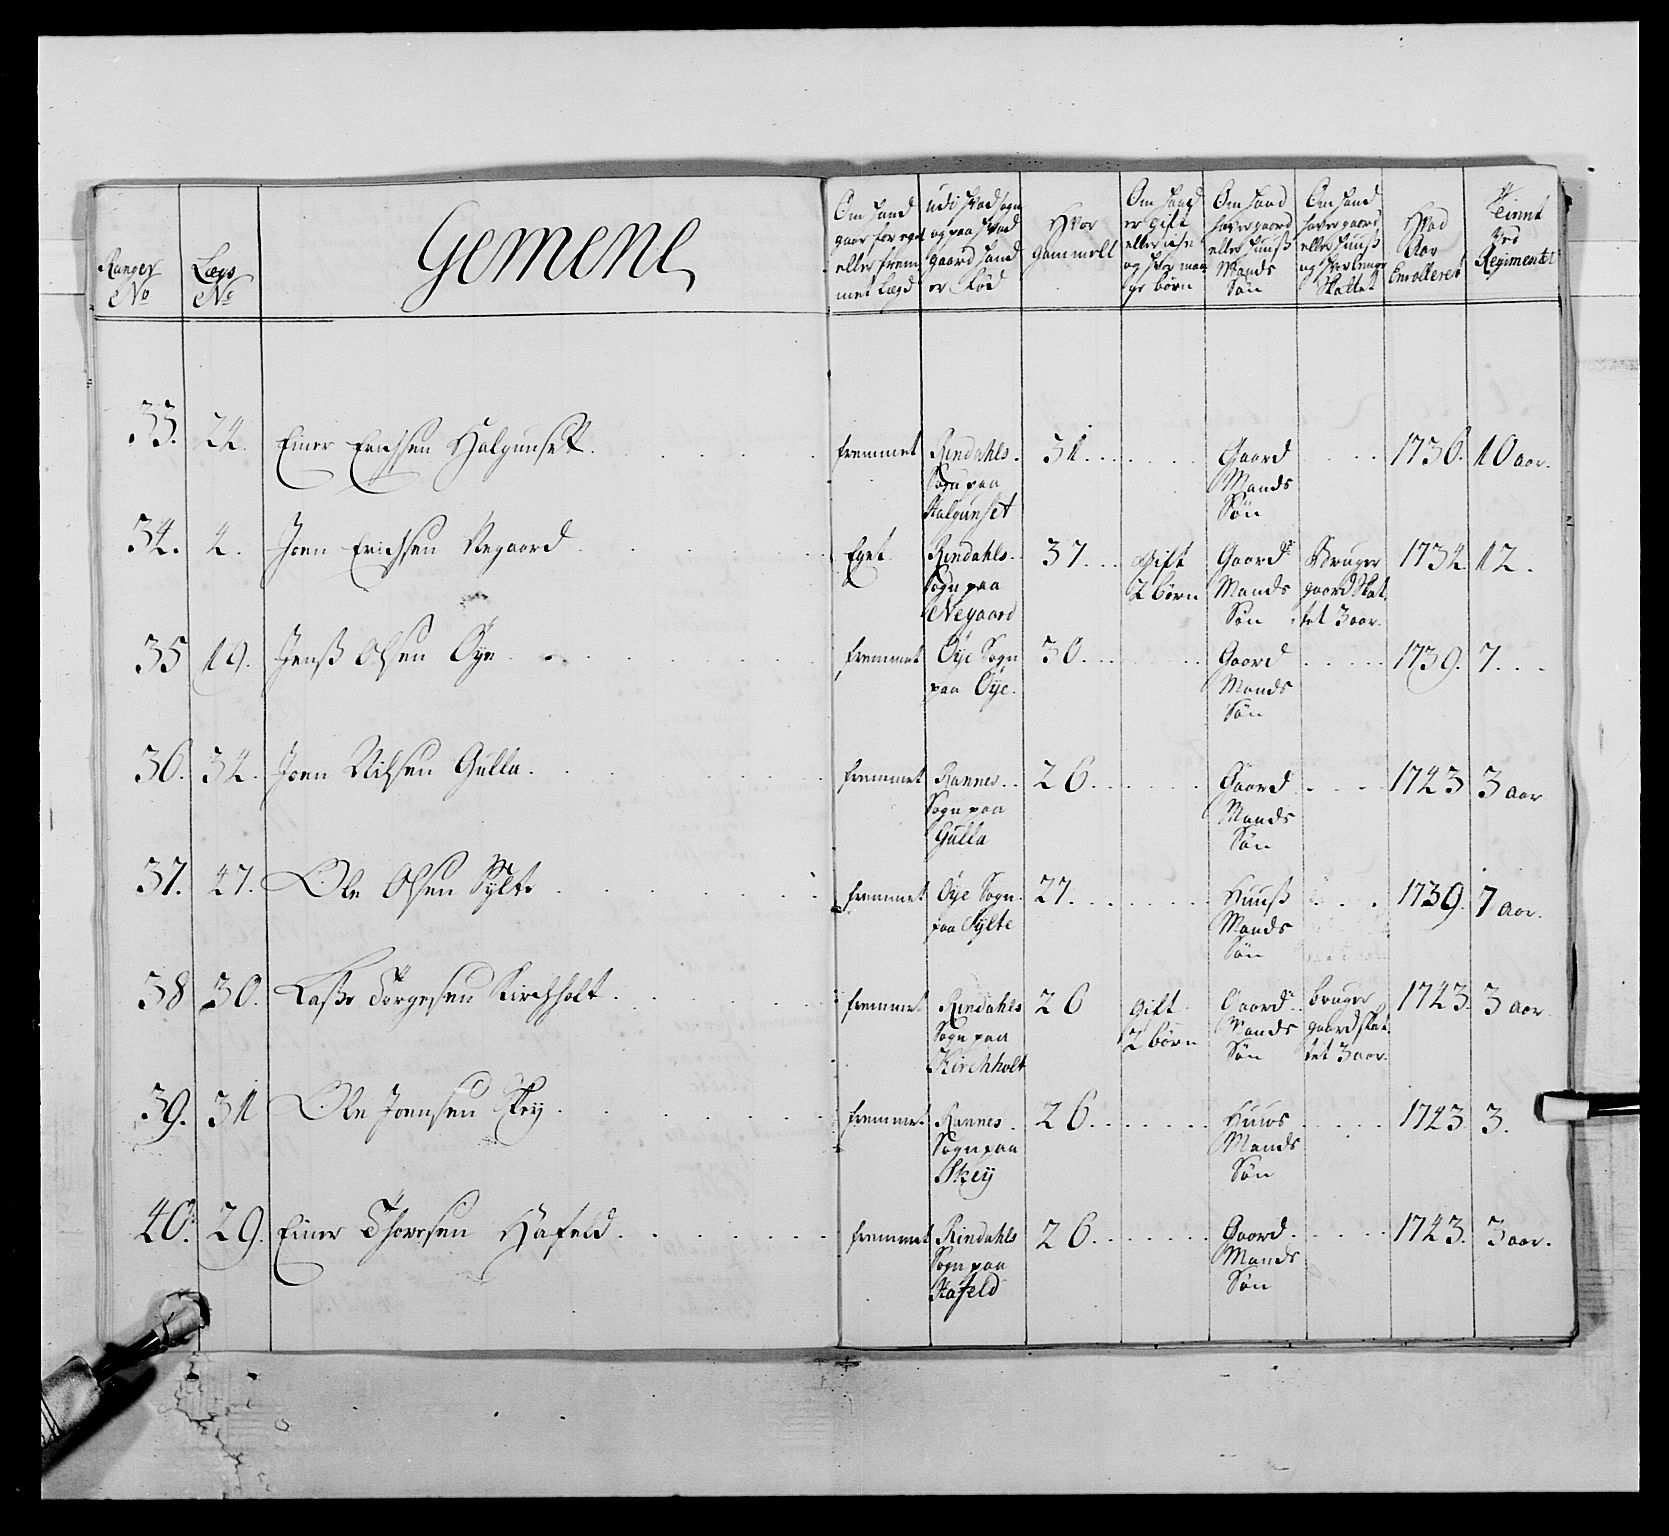 Ranger No
Legs No
Gemene
Om hand gaar for eget eller frem met Legd
udi hvad sogn og paa hvad gaard hand er Fød
Hvor gammell
Om hand er gift eller eche og hvor man ge børn
Om hand haver gaard eller Huuss Mands Søn
Om hand haver gaard eller Huuss og hvor lenge Skattet
Hvad Aar Enrolleret
Tient ved Regimentet
33. 24. Einer Erichsen Halgunset. fremmet Rindahls Sogn paa Halgunset 31. Gaard Mands Søn 1736. 10 aar.
34. 4. Joen Erichsen Negaard. Eget Rindahls Sogn paa Negaard 37. Gift 2 børn Gaard Mands Søn Bruger gaard Skat tet 3 aar. 1734. 12.
35 19. Jenss Olsen Øye. fremmet Øye Sogn paa Øye. 30. Gaard Mands Søn 1739. 7.
36. 34. Joen Nilsen Gulla. fremmet Rannes Sogn paa Gulla 26. Gaard Mands Søn 1743 3 aar
37. 47. Ole Olsen Sylte. fremmet Øye Sogn paa Sylte 27. Huuss Mands Søn 1739. 7 aar.
38 30. Lasse Torgersen Kirchholt. fremmet Rindahls Sogn paa Kirchholt 26 Gift 2 børn Gaard Mands Søn bruger gaard skat tet 3 aar. 1743. 3 aar
39. 31 Ole Joensen Skey. fremmet Rannes Sogn paa Skey 26. Huus Mands Søn 1743 3.
40. 29. Einer Thoresen Hafeld. fremmet Rindahls Sogn paa Hafeld 26. Gaard Mands Søn 1743. 3 aar.